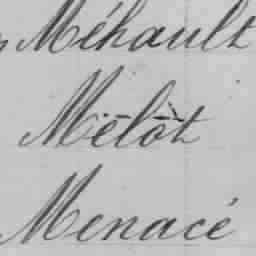 Méhault
Melot
Menacé